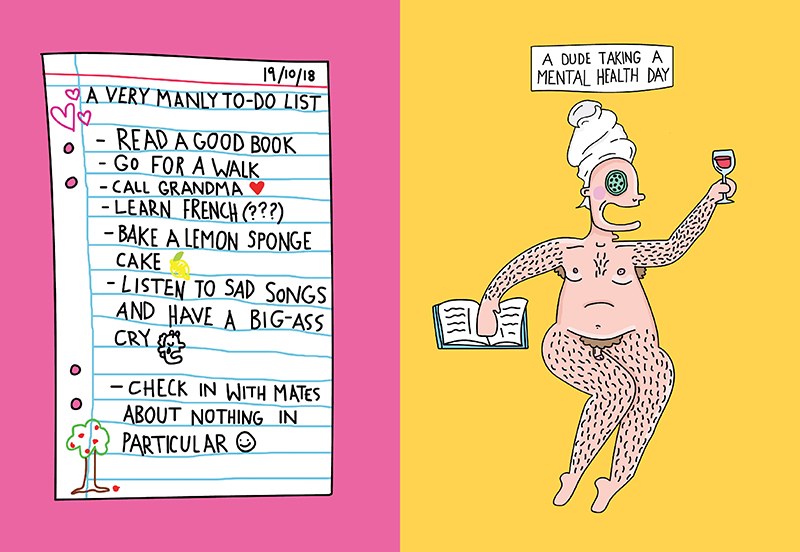 19/10/18
A VERY MANLY TO-DO LIST
- READ A GOOD BOOK
- GO FOR A WALK
- CALL GRANDMA
- LEARN FRENCH (???)
- BAKE A LEMON SPONGE
CAKE
- LISTEN TO SAD SONGS
AND HAVE A BIG-ASS
CRY
- CHECK IN WITH MATES
ABOUT NOTHING IN
PARTICULAR
A DUDE TAKING A
MENTAL HEALTH DAY